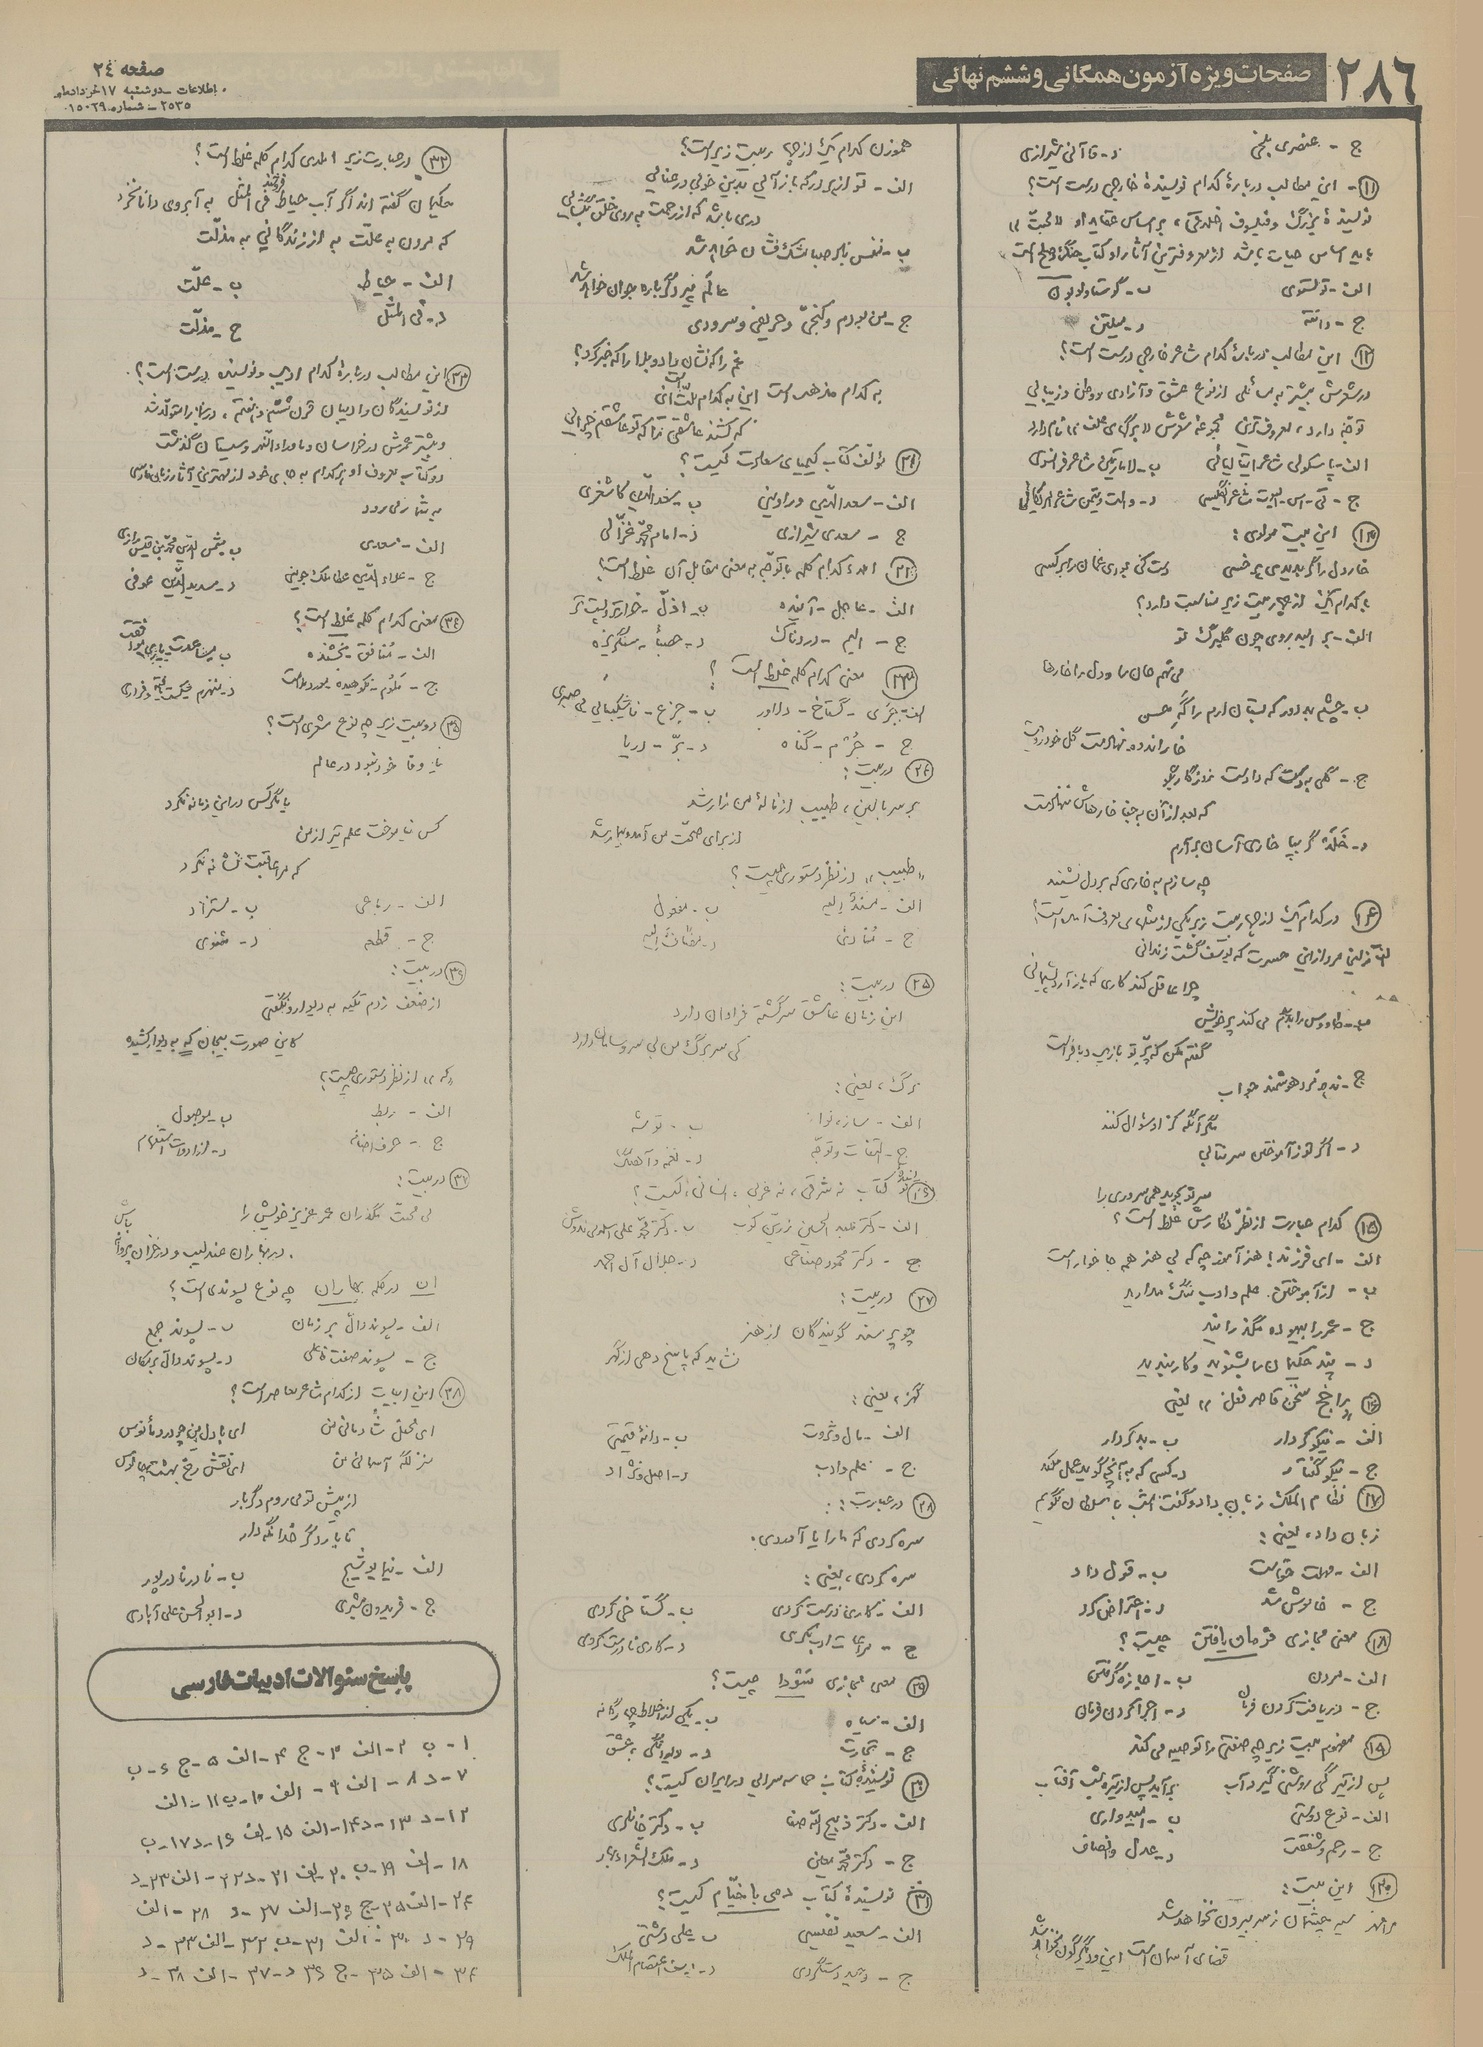 صفحات ویژه آزمون همگانی و ششم نهائی ۲۸۶
صفحه ۲۴
اطلاعات - دوشنبه ۱۷ خرداد ماه
۲۵۳۵ - شماره ۱۵۰۲۹
ج - عنصری بلخی د - قاآنی شیرازی
۱۱ - این مطالب دربارهٔ کدام نویسندهٔ خارجی درست است؟
نویسندهٔ بزرگ و فیلسوف اخلاقی، براساس عقاید او «محبت»
باید اساس حیات باشد از معروفترین آثار او کتاب جنگ و صلح است
الف - تولستوی ب - گوستاولوبون
ج - دانته د - میلتن
۱۲ این مطالب دربارهٔ کدام شاعر خارجی درست است؟
در شعرش بیشتر به مسائلی از نوع عشق و آزادی و وطن و زیبایی
توجه دارد، معروفترین مجموعهٔ شعرش «برگهای علف» نام دارد
الف - پاسکولی شاعر ایتالیائی ب - لامارتین شاعر فرانسوی
ج - تی - اس - الیوت شاعر انگلیسی د - والت ویتمن شاعر امریکائی
۱۳ این بیت مولوی:
خار دل را گر بدیدی هر خسی دست کی بودی غمان را بر کسی
با کدام یک از چهار بیت زیر مناسبت دارد؟
الف - بر امید روی چون گلبرگ تو
می نهم جان را و دل را خارها
ب - چشم بد دور که بستان ارم را گه حسن
خار اندوه نهادست گل خودرویت
ج - گلی به دست که دادست روزگار بگو
که بعد از آن به جفا خارهاش ننهادست
د - خلد گر بپا خاری آسان برآرم
چه سازم به خاری که بر دل نشیند
۱۴ در کدام یک از چهار بیت زیر یکی از مثلهای معروف آمده است؟
الف - زلیخا مرد از این حسرت که یوسف گشت زندانی
چرا عاقل کند کاری که باز آرد پشیمانی
ب - طاووس را بدیدم می کند پر خویش
گفتم مکن که پر تو بازیب و بافر است
ج - ندهد مرد هوشمند جواب
مگر آنگه کز او سئوال کنند
د - اگر تو از آموختن سر نتابی
سر تو بجوید همی سروری را
۱۵ کدام عبارت از نظر نگارش غلط است؟
الف - ای فرزند! هنر آموز چه که بی هنر همه جا خوار است
ب - از آموختن علم و ادب ننگ مدارید
ج - عمر را بیهوده مگذرانید
د - پند حکیمان را بشنوید و کار بندید
۱۶ «راجح سخن قاصر فعل» یعنی
الف - نیکو کردار ب - بد کردار
ج - نیکو گفتار د - کسی که به آنچه گوید عمل نکند
۱۷ نظام الملک زبان بداد و گفت امشب با سلطان بگویم
زبان داد، یعنی:
الف - مهلت خواست ب - قول داد
ج - خاموش شد د - اعتراض کرد
۱۸ معنی مجازی فرمان یافتن چیست؟
الف - مردن ب - اجازه گرفتن
ج - دریافت کردن فرمان د - اجرا کردن فرمان
۱۹ مفهوم بیت زیر چه صفتی را توصیه می کند
پس از تیرگی روشنی گیرد آب برآید پس از تیره شب آفتاب
الف - نوع دوستی ب - امیدواری
ج - رحم و شفقت د - عدل و انصاف
۲۰ این بیت:
مرا مهر سیه چشمان ز سر بیرون نخواهد شد
قضای آسمان است این و دیگرگون نخواهد شد
هموزن کدام یک از چهار بیت زیر است؟
الف - تو از هر در که باز آئی بدین خوبی و رعنایی
دری باشد که از رحمت به روی خلق بگشایی
ب - نفس باد صبا مشک فشان خواهد شد
عالم پیر دگرباره جوان خواهد شد
ج - من بودم و کنجی و حریفی و سرودی
غم را که نشان داد و بلا را که خبر کرد؟
به کدام مذهب است این به کدام ملت است این
که کشند عاشقی را که تو عاشقم چرایی
مؤلف کتاب کیمیای سعادت کیست؟
الف - سعدالدین وراوینی ب - سعدالدین کاشغری
ج - سعدی شیرازی د - امام محمد غزالی
املاء کدام کلمه با توجه به معنی مقابل آن غلط است؟
الف - عاجل - آینده ب - اذل - خوارتر و پست تر
ج - الیم - دردناک د - حصباء - سنگریزه
معنی کدام کلمه غلط است؟
الف - جری - گستاخ - دلاور ب - جزع - ناشکیبایی بی صبری
ج - جُرم - گناه د - بَرّ - دریا
۲۴ در بیت:
بر سر بالین، طبیب از نالهٔ من زار شد
از برای صحت من آمد و بیمار شد
«طبیب» از نظر دستوری چیست؟
الف - مسندالیه ب - مفعول
ج - منادی د - مضاف الیه
۲۵ در بیت:
این زمان عاشق سرگشته فراوان دارد
کی سر برگ من بی سر و سامان دارد
برگ، یعنی:
الف - ساز و نوا ب - توشه
ج - التفات و توجه د - نغمه و آهنگ
۲۶ نویسندهٔ کتاب نه شرقی، نه غربی، انسانی، کیست؟
الف - دکتر عبدالحسین زرین کوب ب - دکتر محمد علی اسلامی ندوشن
ج - دکتر محمود صناعی د - جلال آل احمد
۲۷ در بیت:
چو پرسند گویندگان از هنر
نشاید که پاسخ دهی از گهر
گهر، یعنی:
الف - مال و ثروت ب - دانهٔ قیمتی
ج - علم و ادب د - اصل و نژاد
۲۸ در عبارت:
سره کردی که ما را یاد آمدی.
سره کردی، یعنی:
الف - کاری درست کردی ب - گستاخی کردی
ج - مراعات ادب کردی د - کاری نادرست کردی
۲۹ معنی مجازی سودا چیست؟
الف - سیاه ب - یکی از اخلاط چهارگانه
ج - تجارت د - دیوانگی، عشق
۳۰ نویسندهٔ کتاب حماسه سرایی در ایران کیست؟
الف - دکتر ذبیح الله صفا ب - دکتر خانلری
ج - دکتر محمد معین د - ملک الشعراء بهار
۳۱ نویسندهٔ کتاب دمی با خیام کیست؟
الف - سعید نفیسی ب - علی دشتی
ج - وحید دستگردی د - یوسف اعتصام الملک
در عبارت زیر املای کدام کلمه غلط است؟
حکیمان گفته اند اگر آب حیاط فروشند فی المثل به آبروی دانا نخرد
که مردن به علّت به از زندگانی به مذلّت
الف - حیاط ب - علّت
د - فی المثل ج - مذلّت
۳۳ این مطالب دربارهٔ کدام ادیب و نویسنده درست است؟
از نویسندگان و ادیبان قرن ششم و هفتم، در بخارا متولد شد
و بیشتر عمرش در خراسان و ماوراءالنهر و سیستان گذشت
دو کتاب معروف او هر کدام به جای خود از بهترین آثار زبان فارسی
به شمار می رود
الف - سعدی ب - شمس الدین محمد بن قیس رازی
ج - علاءالدین عطاملک جوینی د - سدیدالدین عوفی
۳۴ معنی کدام کلمه غلط است؟
الف - مُنافق - بخشنده ب - مساعدت - یاری، موافقت
ج - مَلُوم - نکوهیده - مورد ملامت د - منهزم - شکست یافته و فراری
۳۵ دو بیت زیر چه نوع شعری است؟
یا وفا خود نبود در عالم
یا مگر کس در این زمانه نکرد
کس نیاموخت علم تیر از من
که مرا عاقبت نشانه نکرد
الف - رباعی ب - مستزاد
ج - قطعه د - مثنوی
۳۶ در بیت:
از ضعف زدم تکیه به دیوار و نگفتی
کاین صورت بیجان که به دیوار کشیده
«که» از نظر دستوری چیست؟
الف - ربط ب - موصول
ج - حرف اضافه د - از ادوات استفهام
۳۷ در بیت:
بی محبت مگذران عمر عزیز خویش را
در بهاران عندلیب و در خزان پروانه باش
ان در کلمه بهاران چه نوع پسوندی است؟
الف - پسوند دال بر زمان ب - پسوند جمع
ج - پسوند صفت فاعلی د - پسوند دال بر مکان
۳۸ این ابیات از کدام شاعر معاصر است؟
ای نخل شادمانی من ای با دل من چو درد مأنوس
منزلگه آسمانی من ای نقش رخ بهشت چالوس
از پیش تو می روم دگربار
تا بار دگر خدا نگه دار
الف - نیما یوشیج ب - نادر نادرپور
ج - فریدون مشیری د - ابوالحسن علی آبادی
پاسخ سئوالات ادبیات فارسی
۱ - ب ۲ - الف ۳ - ج ۴ - الف ۵ - ج ۶ - ب
۷ - د ۸ - الف ۹ - الف ۱۰ - ب ۱۱ - الف
۱۲ - د ۱۳ - د ۱۴ - الف ۱۵ - الف ۱۶ - د ۱۷ - ب
۱۸ - الف ۱۹ - ب ۲۰ - الف ۲۱ - د ۲۲ - الف ۲۳ - د
۲۴ - الف ۲۵ - ج ۲۶ - الف ۲۷ - د ۲۸ - الف
۲۹ - د ۳۰ - الف ۳۱ - ب ۳۲ - الف ۳۳ - د
۳۴ - الف ۳۵ - ج ۳۶ - د ۳۷ - الف ۳۸ - د